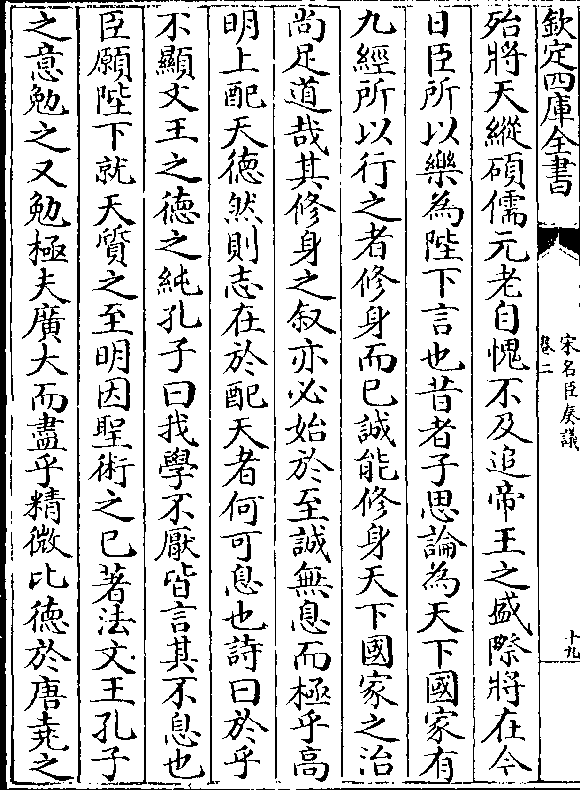 欽定四庫全書
宋名臣奏議
卷二
十九
殆將天縱碩儒元老自愧不及追帝王之盛際將在今
日臣所以樂為陛下言也昔者子思論為天下國家有
九經所以行之者修身而已誠能修身天下國家之治
尚足道哉其修身之叙亦必始於至誠無息而極乎高
明上配天德然則志在於配天者何可息也詩曰於乎
不顯文王之德之純孔子曰我學不厭皆言其不息也
臣願陛下就天質之至明因聖術之已著法文王孔子
之意勉之又勉極夫廣大而盡乎精微比德於唐堯之